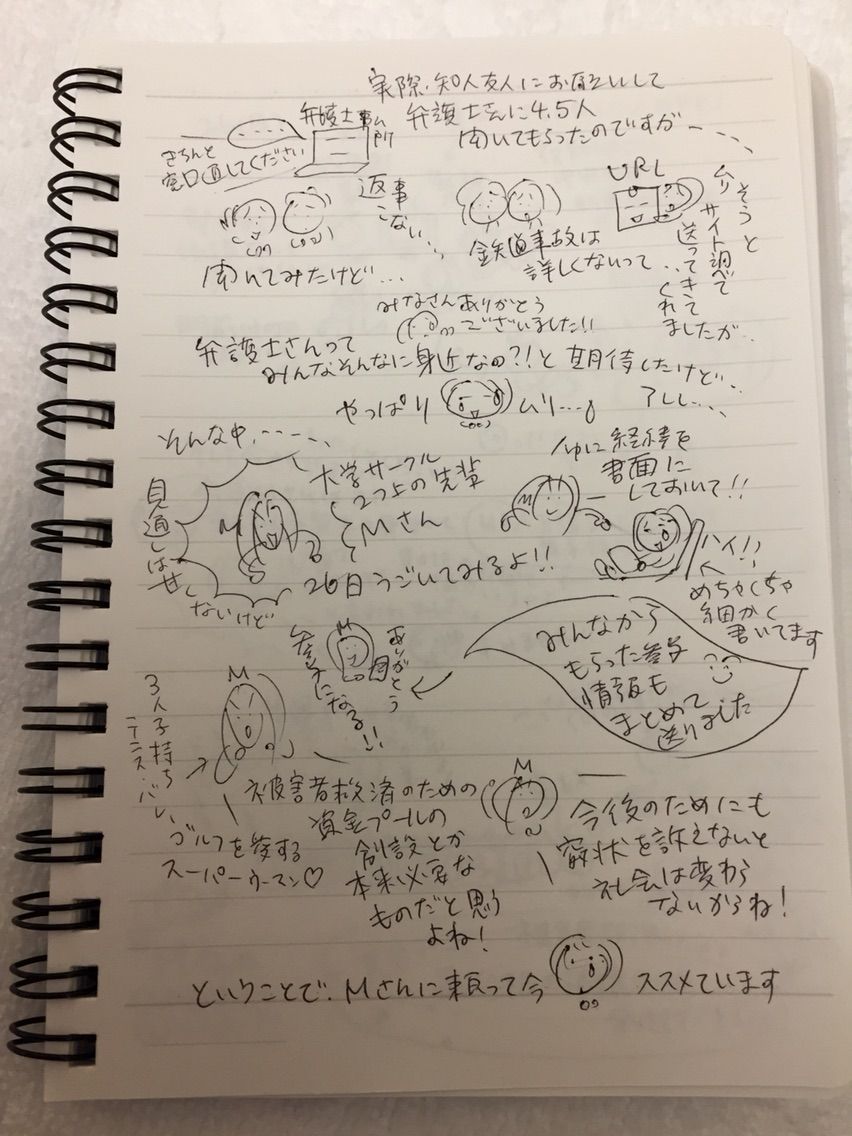 実際、知人友人にお願いして
弁護士さんに4.5人
聞いてもらったのですが---、、
弁護士事ム所
きちんと
窓口通してください
返事
こない、、、
聞いてみたけど…
鉄道事故は
詳しくないって…
URL
そうと
ムリ サイト調べて
送ってきて
くれて
ましたが、、
みなさんありがとう
ございました!!
弁護士さんって
みんなそんなに身近なの?!と期待したけど、、
アレレ、、、
やっぱり
ムリ…
そんな中、----、、
見通しは甘く
ないけど
大学サークル
2つ上の先輩
Mさん
M
26日うごいてみるよ!!
M
経緯を
書面に
しておいて!!
ハイ!!
めちゃくちゃ
細かく
書いてます
みんなから
もらった参考
情報も
まとめて
送りました
M
ありがとう
参考になる!!
M
3人子持ち
テニス・バレー
ゴルフを愛する
スーパーウーマン♡
被害者救済のための
資金プールの
創設とか
本来必要な
ものだと思う
よね!
M
今後のためにも
窮状を訴えないと
社会は変わら
ないからね!
ということで、Mさんに頼って今
ススメています